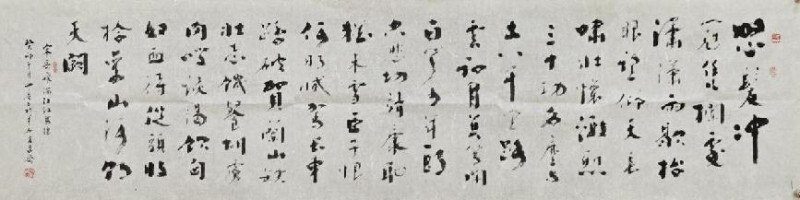 怒髮冲
冠凭闌處
瀟瀟雨歇抬
眼望仰天長
嘯壯懷激烈
三十功名塵与
土八千里路
雲和月莫等閒
白了少年頭
空悲切靖康恥
猶未雪臣子恨
何時滅駕長車
踏破賀蘭山缺
壯志飢餐胡虜
肉笑談渴飲匈
奴血待從頭收
拾舊山河朝
天闕
宋岳飛滿江紅
癸卯